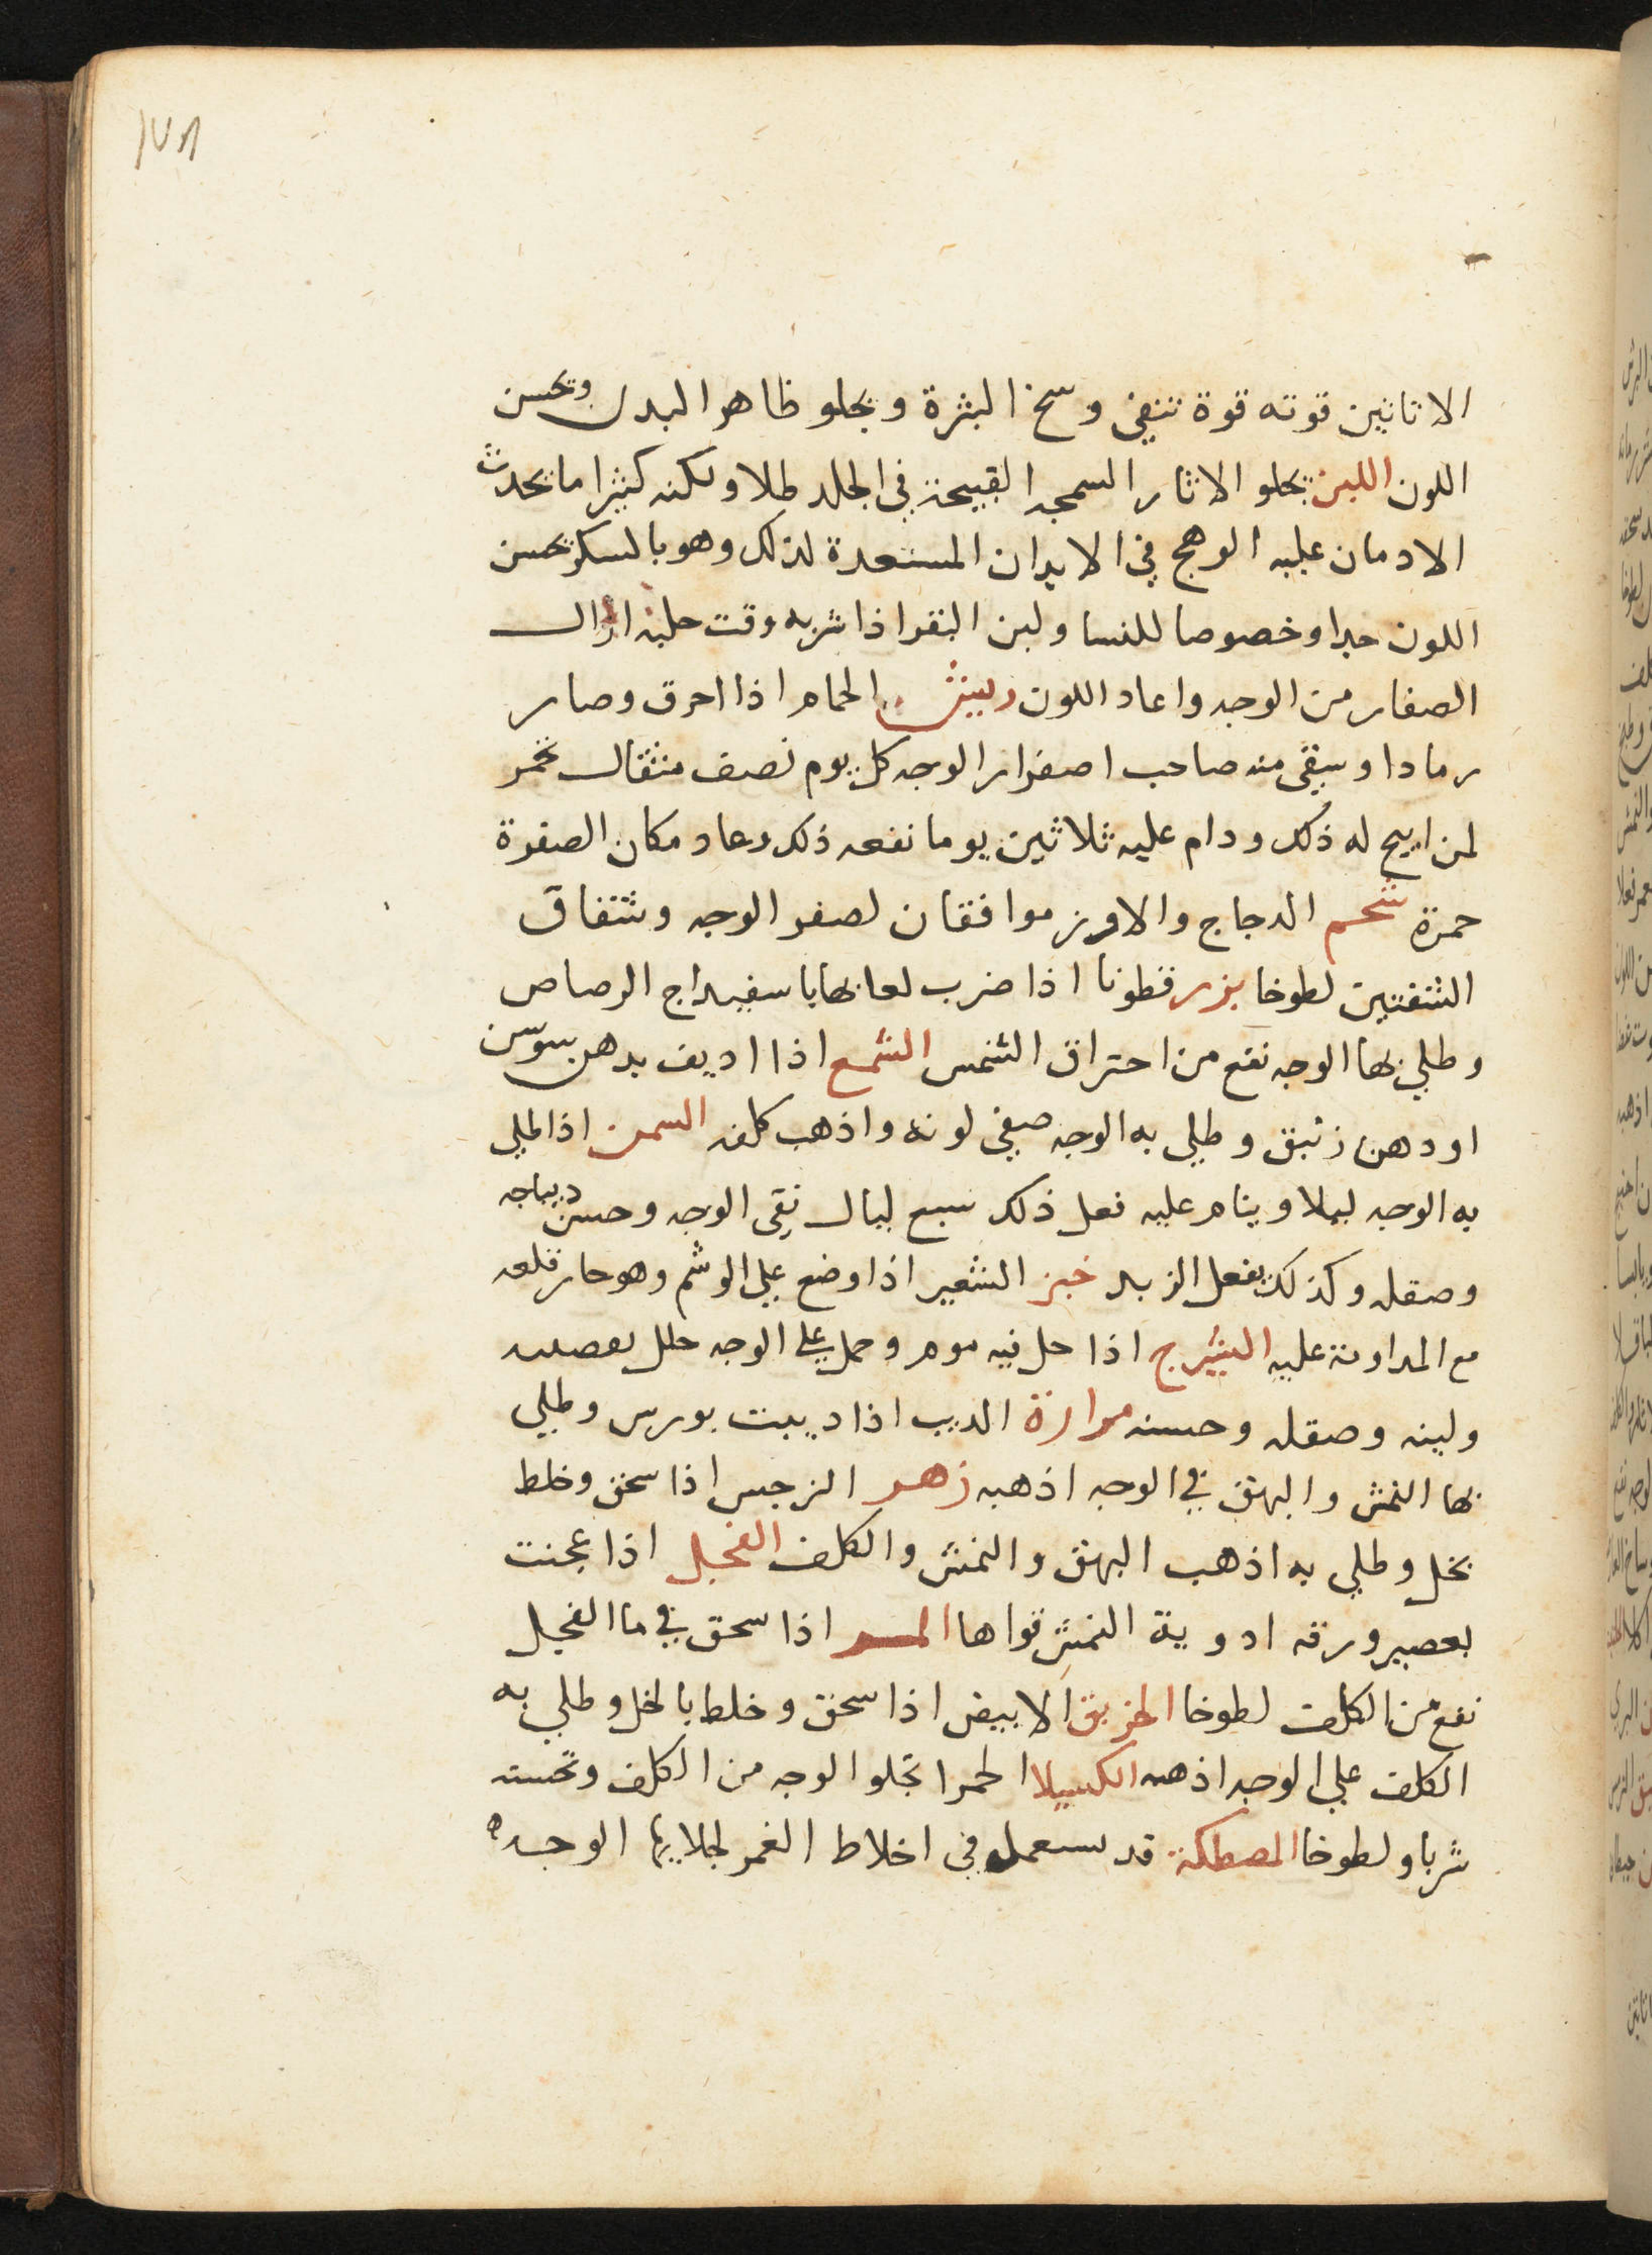 الاناتين قوته قوة تنقي وسخ البشرة ويجلو ظاهر البدن ويحسن
اللون اللبن يجلو الاثار السمجه القبيحة في الجلد طلا ولكنه كثيرا ما يحدث
الادمان عليه الوهج في الابدان المستعدة لذلك وهو بالسكر يحسن
اللون جدا وخصوصا للنسا ولبن البقر اذا شربه وقت حلبه ازال
الصفار من الوجه واعاد اللون ريش الحمام اذا احرق وصار
رمادا وسقي منه صاحب اصفرار الوجه كل يوم نصف مثقال بخمر
لمن ابيح له ذلك ودام عليه ثلاثين يوما نفعه ذلك وعاد مكان الصفرة
حمرة شحم الدجاج والاوز موافقان لصفر الوجه وشقاق
الشفتين لطوخا بزر قطونا اذا ضرب لعابها باسفيداج الرصاص
وطلي بها الوجه نفع من احتراق الشمس الشمع اذا اديف بدهن سوسن
او دهن زنبق وطلي به الوجه صفي لونه واذهب كلفه السمن اذا طلي
به الوجه ليلا وينام عليه فعل ذلك سبع ليال نقي الوجه وحسن ديباجه
وصقله وكذلك يفعل الزبد خبز الشعير اذا وضع علي الوشم وهو حار قلعه
مع المداومة عليه الشيرج اذا حل فيه موم وحمل علي الوجه حلل
ولينه وصقله وحسنه مرارة الديب اذا ديبت بورس وطلي
بها النمش والبهق في الوجه اذهبه زهر النرجس اذا سحق وخلط
بخل وطلي به اذهب البهق والنمش والكلف الفجل اذا عجنت
بعصير ورقه ادوية النمش قواها المر اذا سحق في ما الفجل
نفع من الكلف لطوخا الخربق الابيض اذا سحق وخلط بالخل وطلي به
الكلف علي الوجه اذهبه الكسيلا الحمرا تجلو الوجه من الكلف وتحسنه
شربا ولطوخا المصطكة قد يستعمل في اخلاط الغمر لجلايها الوجه